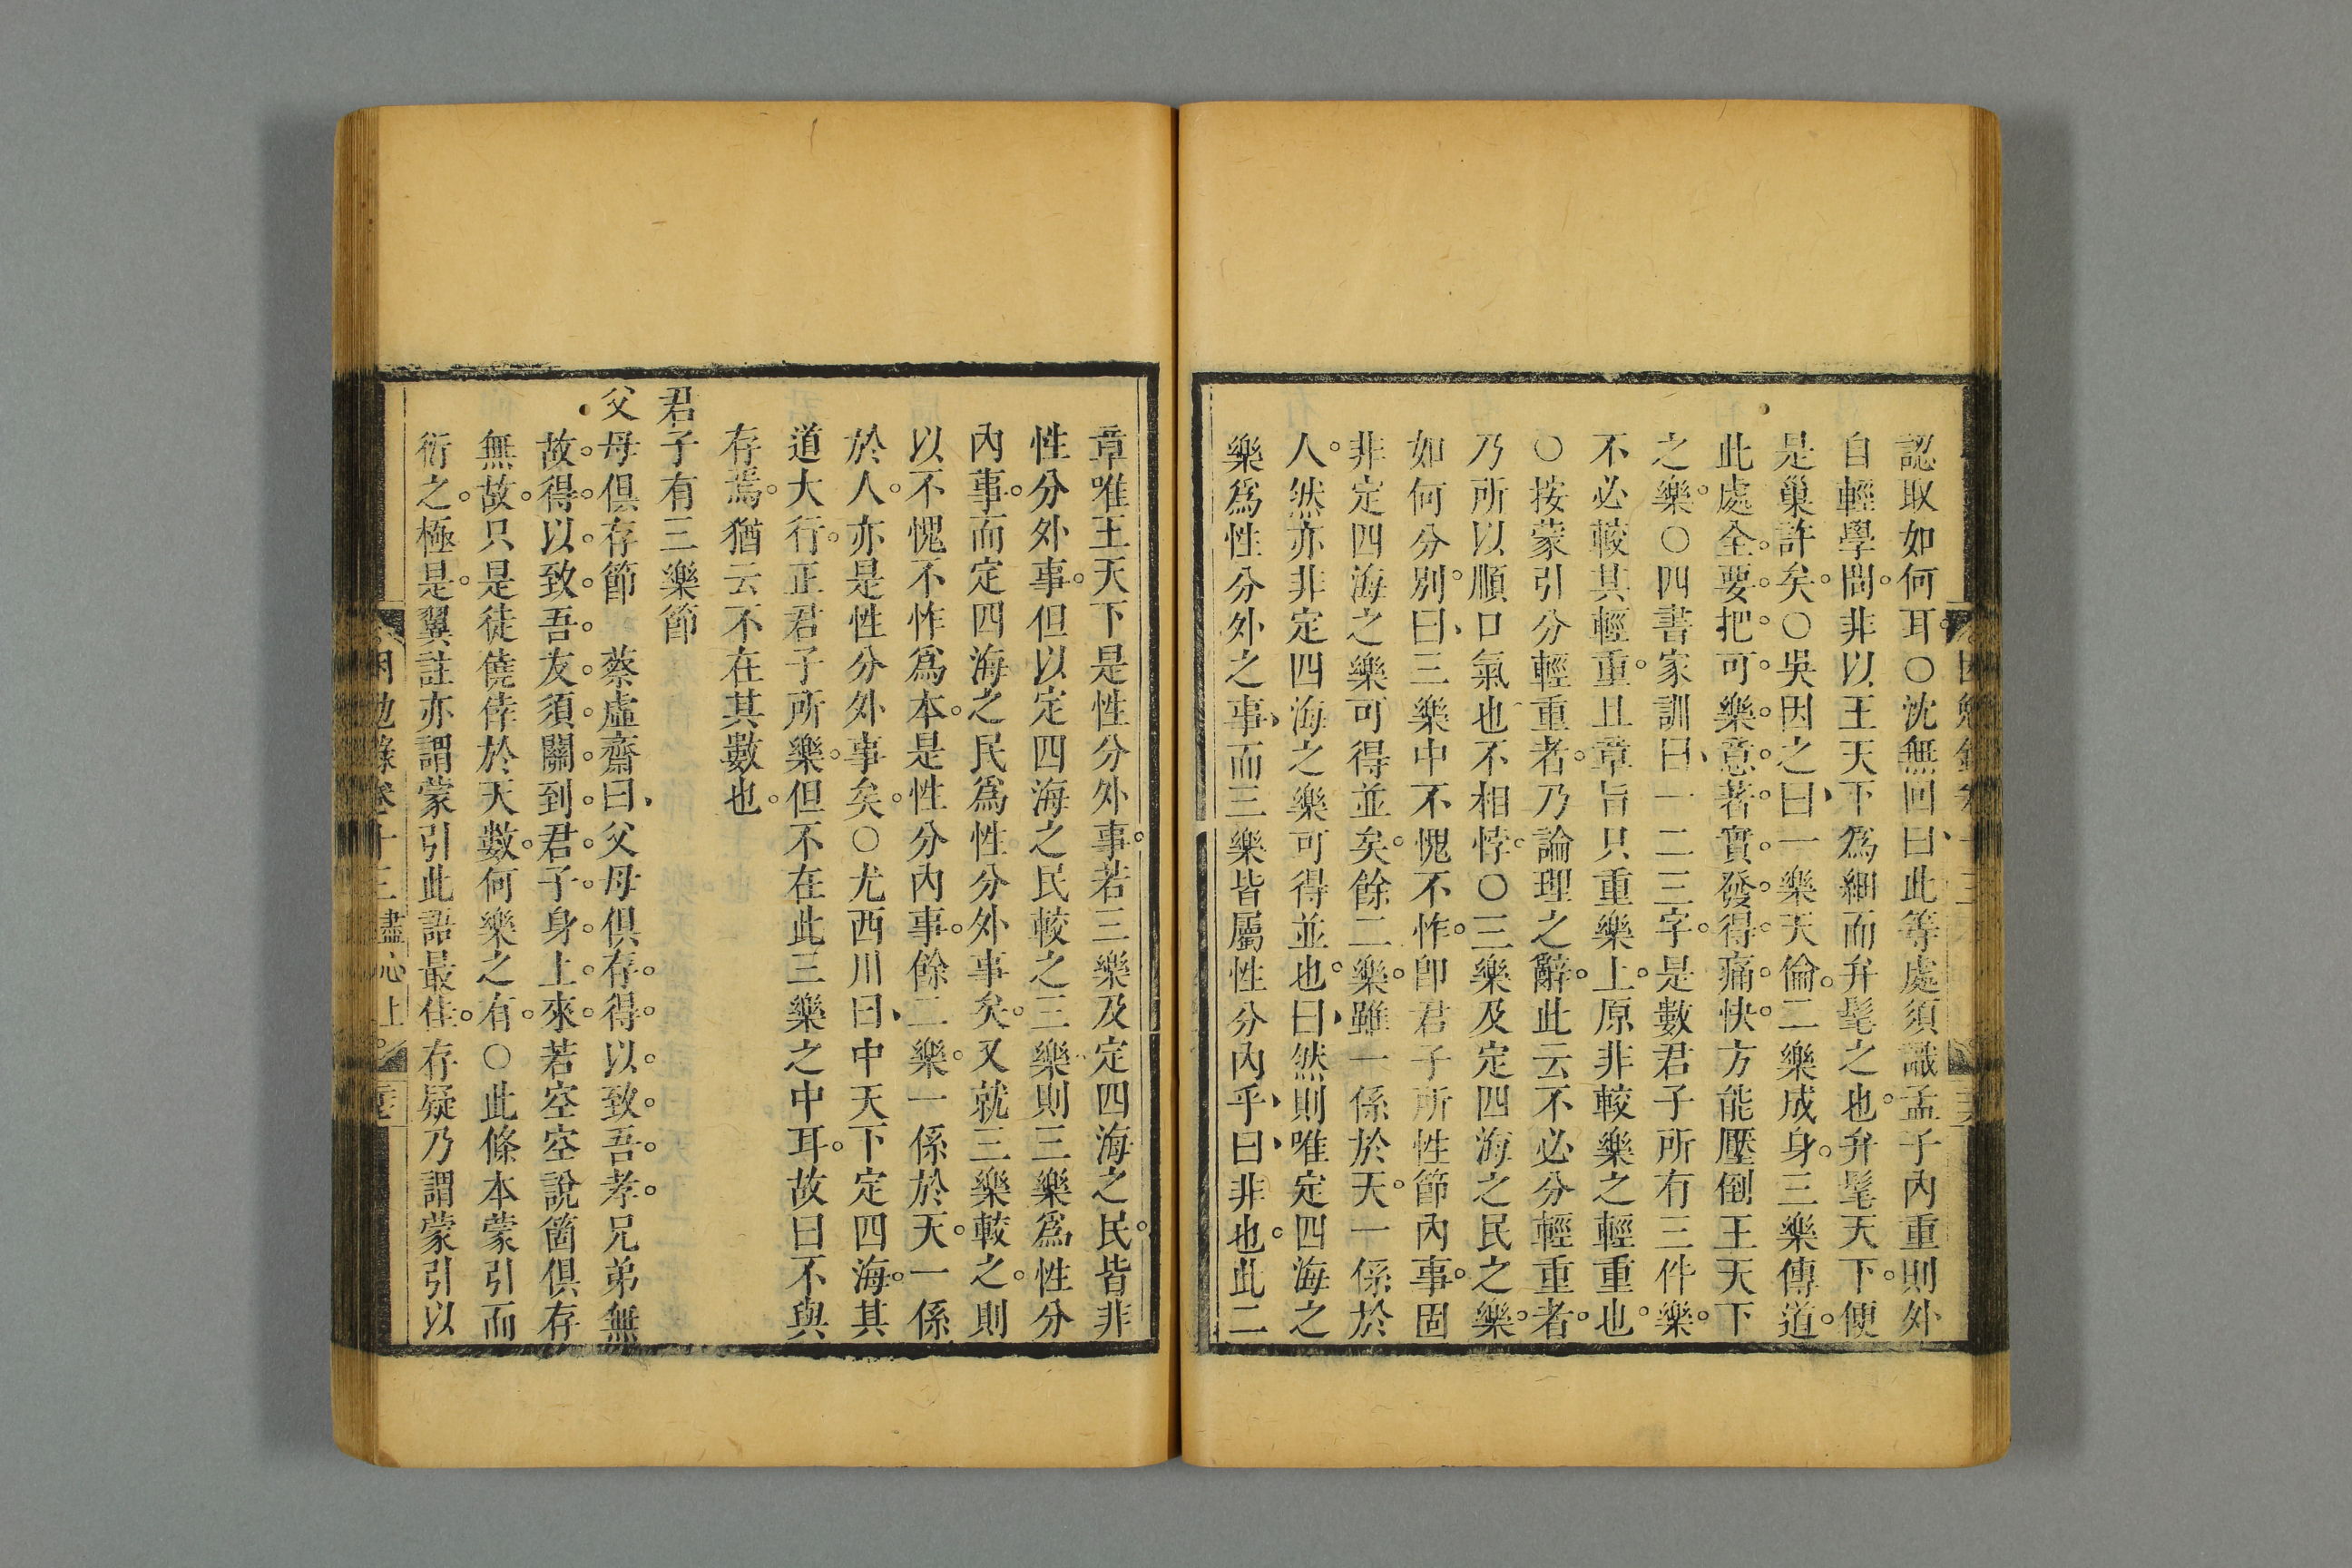 認取如何耳○沈無回曰此等處須識孟子內重則外
自輕學問非以王天下為細而弁髦之也弁髦天下便
是巢許矣○吳因之曰一樂天倫二樂成身三樂傳道
此處全要把可樂意著實發得痛快方能壓倒王天下
之樂○四書家訓曰一二三字是數君子所有三件樂
不必較其輕重且章旨只重樂上原非較樂之輕重也
○按蒙引分輕重者乃論理之辭此云不必分輕重者
乃所以順口氣也不相悖○三樂及定四海之民之樂
如何分別曰三樂中不愧不怍即君子所性節內事固
非定四海之樂可得並矣餘二樂雖一係於天一係於
人然亦非定四海之樂可得並也曰然則唯定四海之
樂爲性分外之事而三樂皆屬性分內乎曰非也此二
章唯王天下是性分外事若三樂及定四海之民皆非
性分外事但以定四海之民較之三樂則三樂爲性分
內事而定四海之民爲性分外事矣又就三樂較之則
以不愧不怍爲本是性分內事餘二樂一係於天一係
於人亦是性分外事矣○尤西川曰中天下定四海其
道大行正君子所樂但不在此三樂之中耳故曰不與
存焉猶云不在其數也
君子有三樂節
父母俱存節 蔡虛齋曰父母俱存得以致吾孝兄弟無
故得以致吾友須關到君子身上來若空空說箇俱存
無故只是徒僥倖於天數何樂之有○此條本蒙引而
衍之極是翼註亦謂蒙引此語最佳存疑乃謂蒙引以
困勉錄卷十三盡心上